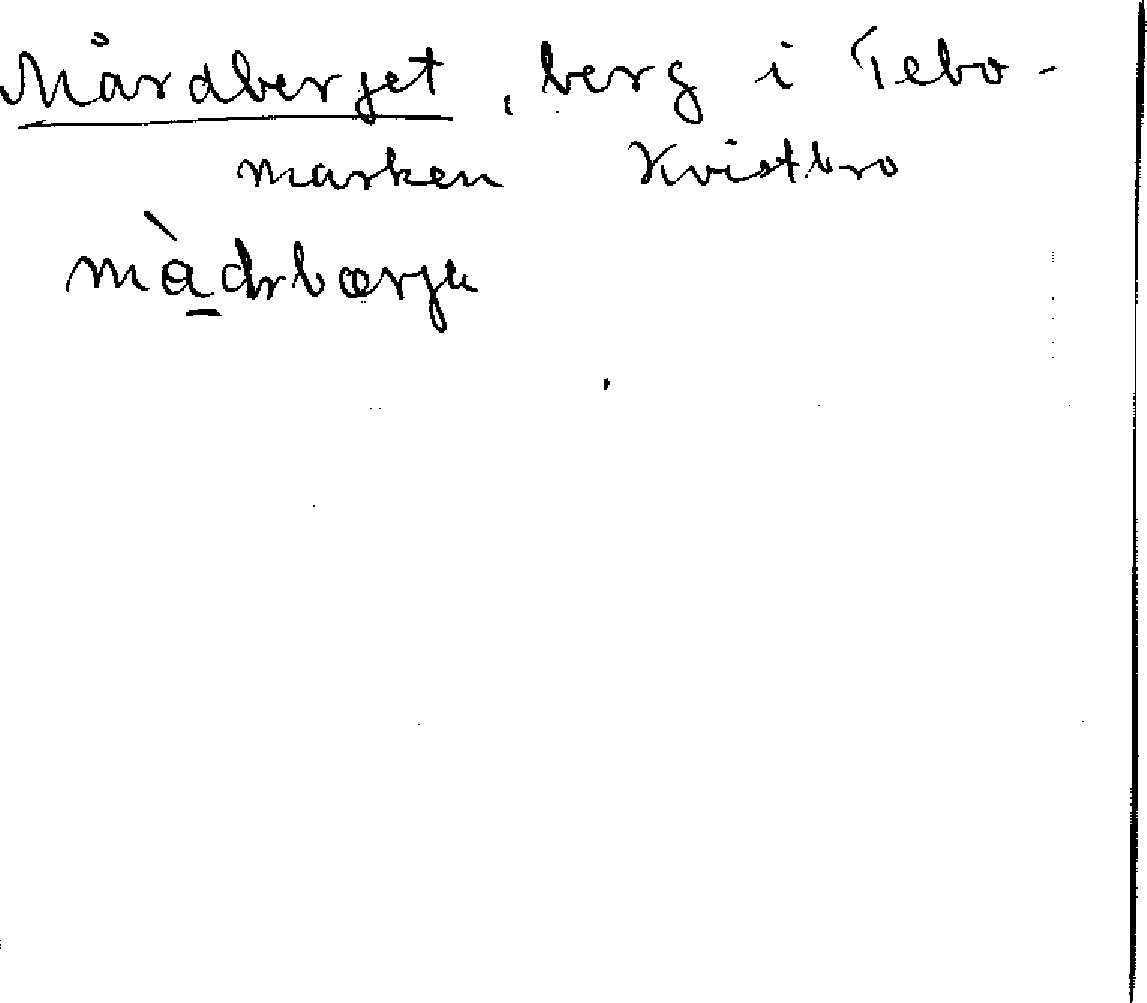 Mårdberget, berg i Tebo-
marken Kvistbro
màdrbærje